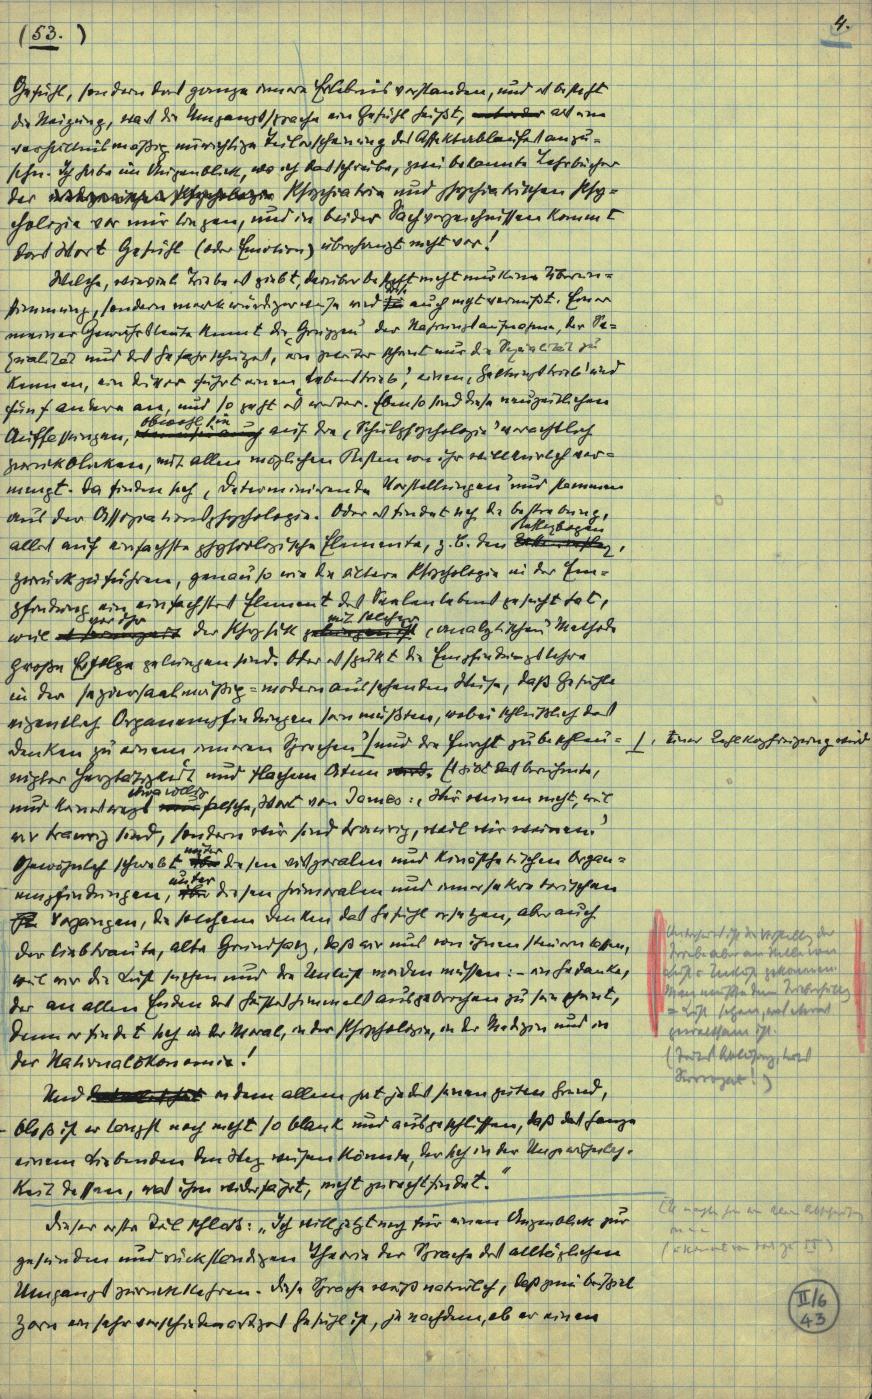 (53.)
4.
Gefühl, sondern das ganze innere Erlebnis verstanden, und es besteht
die Neigung, was die Umgangssprache ein Gefühl heißt, als eine
verhältnismäßig unwichtige Teilerscheinung des Affektablaufes anzu=
sehn. Ich habe im Augenblick, wo ich das schreibe, zwei bekannte Lehrbücher
der Psychiatrie und psychiatrischen Psy=
chologie vor mir liegen, und in beider Sachverzeichnissen kommt
das Wort Gefühl (oder Emotion) überhaupt nicht vor!
Welche, wieviel Triebe es giebt, darüber besteht nicht nur keine Überein=
stimmung, sondern merkwürdigerweise wird sie auch nicht vermißt. Einer
meiner Gewährsleute kennt die Gruppen der Nahrungsaufnahme, der Se=
xualität und des Gefahrschutzes, ein zweiter scheint nur die Sexualität zu
kennen, ein dritter führt einen ‚Lebenstrieb', einen ‚Geltungstrieb' und
fünf andere an, und so geht es weiter. Ebenso sind diese neuzeitlichen
Auffassungen, obwohl sie auf die ‚Schulpsychologie' verächtlich
zurückblicken, mit allen möglichen Resten von ihr willkürlich ver=
mengt. Da finden sich ‚Determinierende Vorstellungen' und stammen
aus der Assoziationspsychologie. Oder es findet sich die Bestrebung,
alles auf einfachste physiologische Elemente, z. B. den Reflexbogen,
zurückzuführen, genau so wie die ältere Psychologie in der Em=
pfindung ein einfachstes Element des Seelenlebens gesucht hat,
weil vor ihr der Physik mit solcher ‚analytischen' Methode
große Erfolge gelungen sind. Oder es spukt die Empfindungslehre
in der seziersaalmäßig=modern aussehenden Weise, daß Gefühle
eigentlich Organempfindungen sein müßten, wobei schließlich das
Denken zu einem ‚inneren Sprechen' und die Furcht zu beschleu=
⊥, einer Kehlkopfreizung wird
nigter Herztätigkeit und flachem Atem. Es ist das berühmte,
und keineswegs etwa völlig falsche, Wort von James: ‚Wir weinen nicht, weil
wir traurig sind, sondern wir sind traurig, weil wir weinen.'
Gewöhnlich schwebt unter diesen viszeralen und kinästhetischen Organ=
empfindungen, unter diesen humoralen und innersekretorischen
Vorgängen, die solchem Denken das Gefühl ersetzen, aber auch
der liebtraute, alte Grundsatz, daß wir uns von ihnen steuern lassen,
weil wir die Lust suchen und die Unlust meiden müssen: – ein Gedanke,
der an allen Enden des Geisteshimmels ausgebrochen zu sein scheint,
denn er findet sich in der Moral, in der Psychologie, in der Medizin und in
der Nationalökonomie!
Und in dem allem hat jedes seinen guten Grund,
bloß ist er längst noch nicht so blank und ausgeschliffen, daß das Ganze
einem Liebenden den Weg weisen könnte, der sich in der Ungewißheit
dessen, was ihm widerfährt, nicht zurechtfindet."
Dieser erste Teil schloß: „Ich will jetzt noch für einen Augenblick zur
gesunden und rückständigen Theorie der Sprache des alltäglichen
Umgangs zurückkehren. Diese Sprache weiß natürlich, daß zum Beispiel
Zorn ein sehr verschiedenartiges Gefühl ist, je nachdem, ob er einen
II/6
43